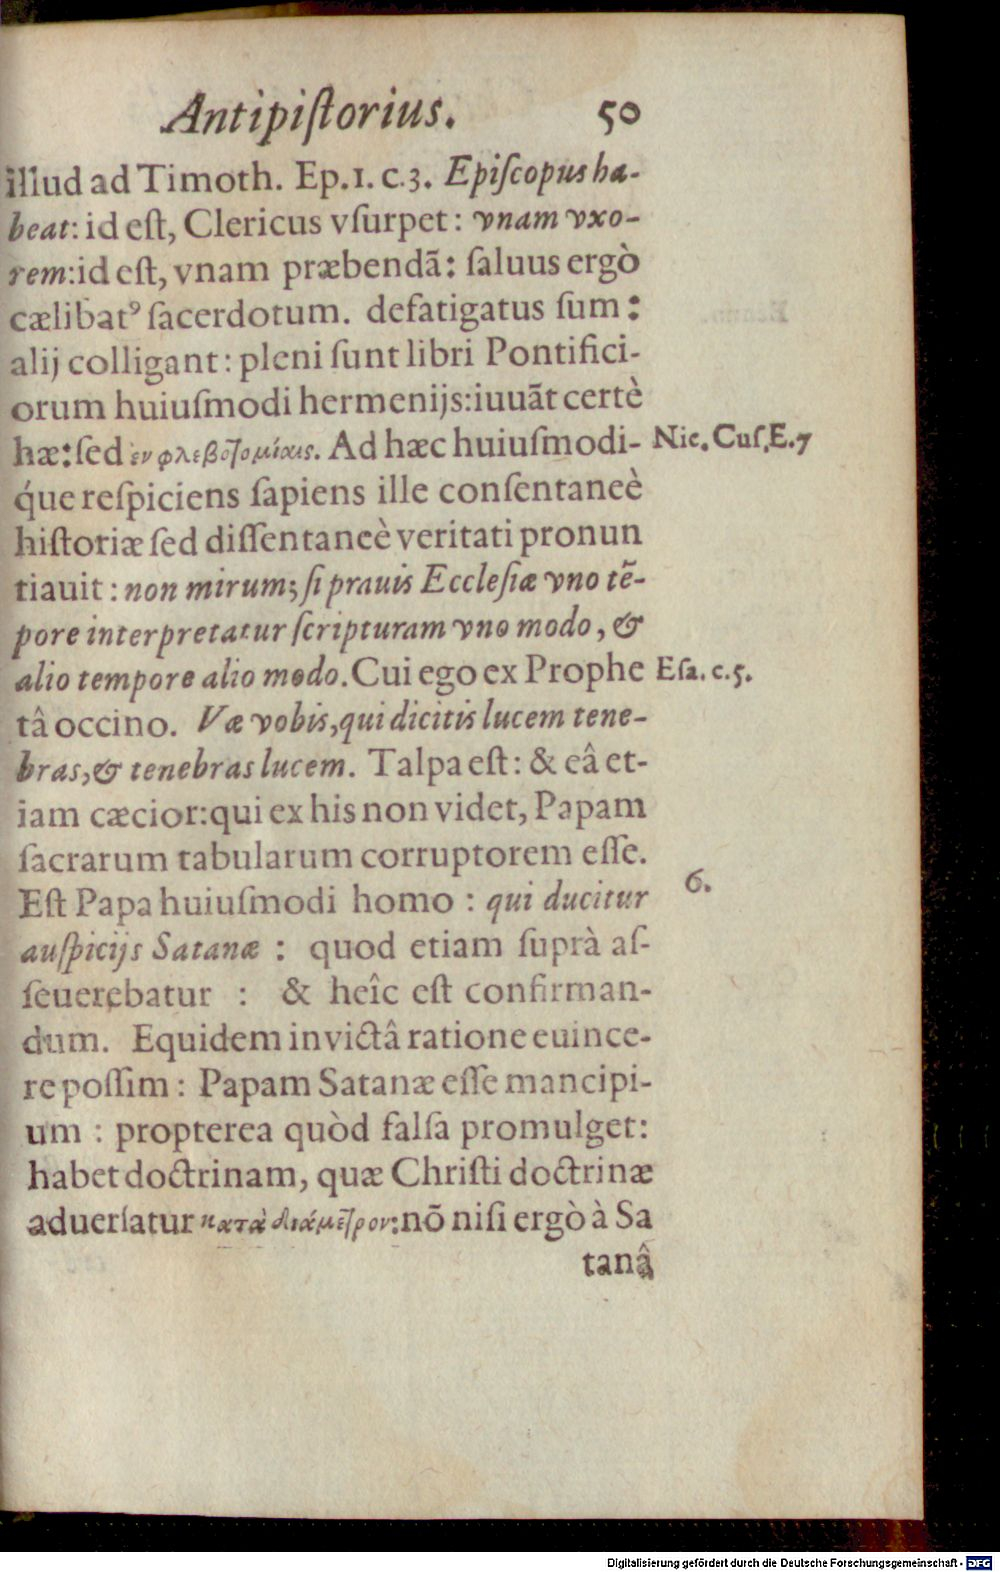 Antipiſtorius. 50
illud ad Timoth. Ep.1. c.3. Epiſcopus ha-
beat: id eſt, Clericus vſurpet: vnam vxo-
rem: id eſt, vnam præbendã: ſaluus ergò
cælibatꝰ ſacerdotum. defatigatus ſum:
alij colligant: pleni ſunt libri Pontifici-
orum huiuſmodi hermenijs: iuuãt certè
hæ: ſed ἐν φλεβοτομίαις. Ad hæc huiuſmodi- Nic. Cuſ. E.7
q́ue reſpiciens ſapiens ille conſentaneè
hiſtoriæ ſed diſſentaneè veritati pronun
tiauit: non mirum; ſi prauis Eccleſiæ vno tẽ-
pore interpretatur ſcripturam vno modo, &
alio tempore alio modo. Cui ego ex Prophe Eſa. c.5.
tâ occino. Væ vobis, qui dicitis lucem tene-
bras, & tenebras lucem. Talpa eſt: & eâ et-
iam cæcior: qui ex his non videt, Papam
ſacrarum tabularum corruptorem eſſe.
Eſt Papa huiuſmodi homo: qui ducitur 6.
auſpicijs Satanæ: quod etiam ſuprà aſ-
ſeuerebatur: & heîc eſt confirman-
dum. Equidem invictâ ratione euince-
re poſſim: Papam Satanæ eſſe mancipi-
um: propterea quòd falſa promulget:
habet doctrinam, quæ Chriſti doctrinæ
aduerſatur κατὰ διάμετρον: nõ niſi ergò à Sa
tanâ
Digitalisierung gefördert durch die Deutsche Forschungsgemeinschaft - DFG